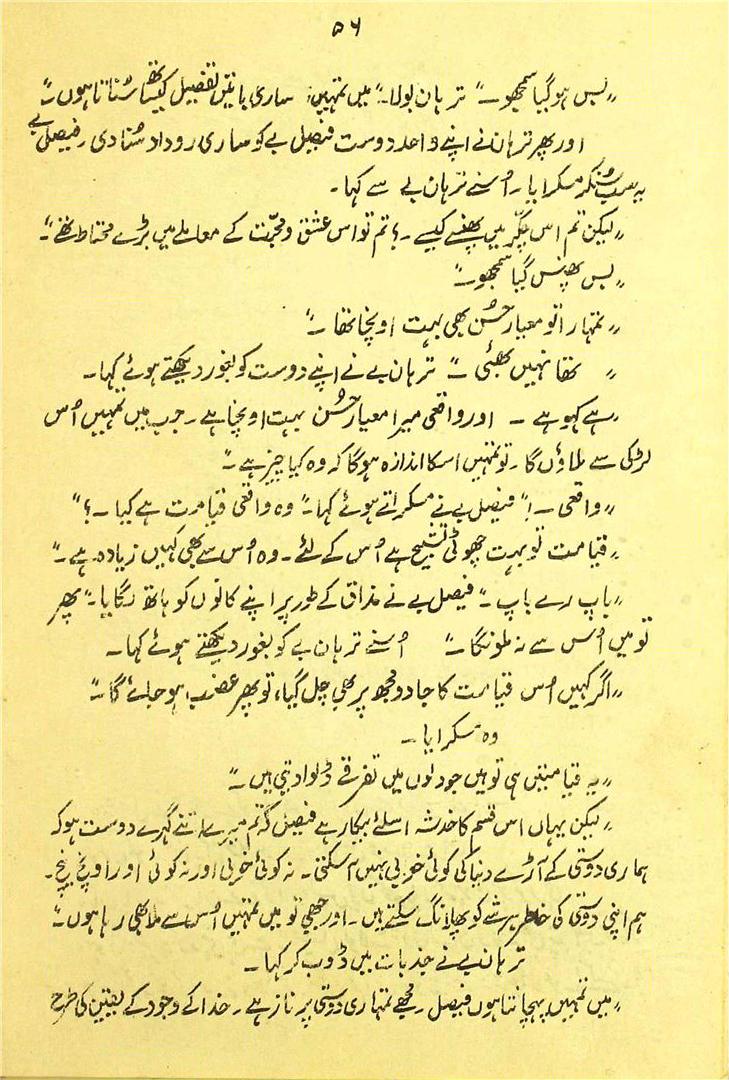 ۵۶
"بس ہو گیا سمجھو ــ" ترہان بولا۔ "میں تمہیں ساری باتیں تفصیل کیساتھ سُناتا ہوں ــ"
اور پھر ترہان نے اپنے واحد دوست فیصل بے کو ساری روداد سُنا دی۔ فیصل بے
یہ سب سُنکر مسکرایا۔ اُسنے ترہان بے سے کہا۔
"لیکن تم اس چکّر میں پھنسے کیسے ۔؟ تم تو اس عشق و محبّت کے معاملے میں بڑے محتاط تھے ــ"
"بس پھنس گیا سمجھو ــ"
"تمہارا تو معیارِ حُسن بھی بہت اونچا تھا ــ"
" تھا نہیں بھئی ــ" ترہان بے نے اپنے دوست کو بغور دیکھتے ہوئے کہا۔
"ہے کہو ہے ــ اور واقعی میرا معیارِ حُسن بہت اونچا ہے۔ جب میں تمہیں اُس
لڑکی سے ملاؤں گا۔ تو تمہیں اسکا اندازہ ہوگا کہ وہ کیا چیز ہے ــ"
"واقعی ــ!" فیصل بے نے مسکراتے ہوئے کہا۔ "وہ واقعی قیامت ہے کیا ــ؟"
"قیامت تو بہت چھوٹی تشبیح ہے اُس کے لئے۔ وہ اُس سے بھی کہیں زیادہ ہے ــ"
"باپ رے باپ ــ" فیصل بے نے مذاق کے طور پر اپنے کانوں کو ہاتھ لگایا۔ "پھر
تو میں اُس سے نہ ملونگا ــ" اُسنے ترہان بے کو بغور دیکھتے ہوئے کہا۔
"اگر کہیں اُس قیامت کا جادو مجھ پر بھی چل گیا، تو پھر غضب ہو جائے گا ــ"
وہ مسکرایا۔
"یہ قیامتیں ہی تو ہیں جو دلوں میں تفرقے ڈلوا دیتی ہیں ــ"
"لیکن یہاں اس قسم کا خدشہ اسلئے بیکار ہے فیصل کہ تم میرے اتنے گہرے دوست ہو کہ
ہماری دوستی کے آڑے دنیا کی کوئی خوبی نہیں آ سکتی۔ نہ کوئی خوبی اور نہ کوئی اور اونچ نیچ۔
ہم اپنی دوستی کی خاطر ہر شے کو پھلانگ سکتے ہیں۔ اور جبھی تو میں تمہیں اُس سے ملا بھی رہا ہوں ــ"
ترہان بے نے جذبات میں ڈوب کر کہا۔
"میں تمہیں پہچانتا ہوں فیصل۔ مجھے تمہاری دوستی پر ناز ہے۔ خدا کے وجود کے یقین کی طرح